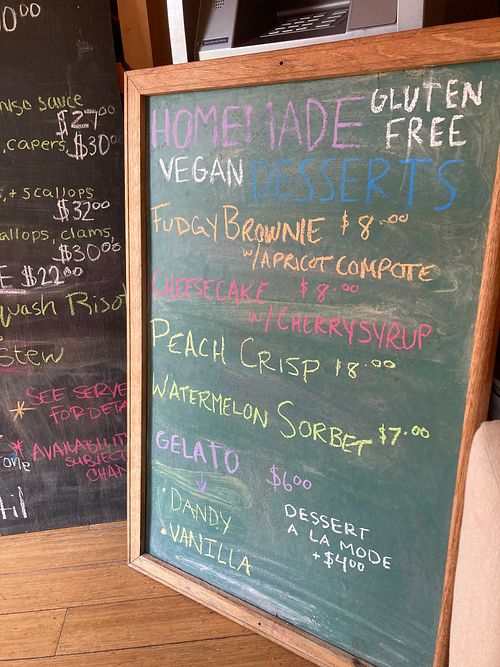 000
miso sauce
$27.00
, capers, $30.00
, + scallops
$32.00
allops, clams,
$30.00
E $22.00
uash Riso
Stew
* SEE SERVE
FOR DETA
* AVAILABILIT
SUBJECT
CHAN
HOMEMADE GLUTEN FREE
VEGAN DESSERTS
FUDGY BROWNIE $8.00
W/APRICOT COMPOTE
CHEESECAKE $8.00
W/CHERRY SYRUP
PEACH CRISP $8.00
WATERMELON SORBET $7.00
GELATO $6.00
↓
• DANDY
• VANILLA
DESSERT
A LA MODE
+$4.00